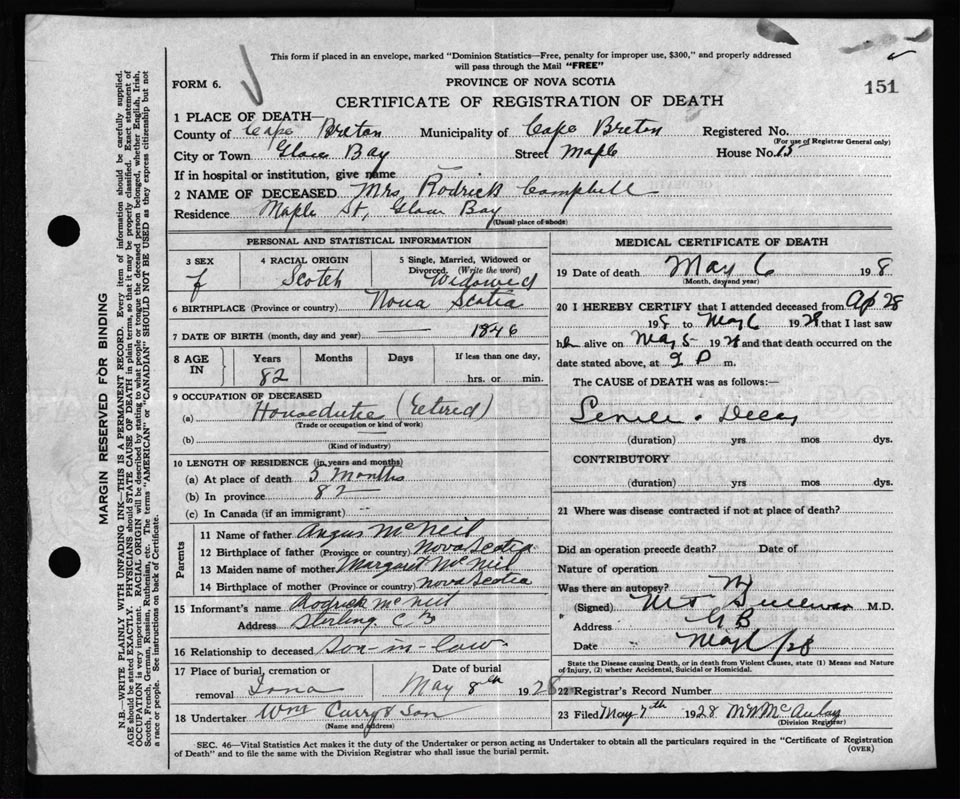 This form if placed in an envelope, marked "Dominion Statistics—Free, penalty for improper use, $300," and properly addressed
will pass through the Mail "FREE"
FORM 6.
PROVINCE OF NOVA SCOTIA
151
CERTIFICATE OF REGISTRATION OF DEATH
1 PLACE OF DEATH—
County of Cape Breton Municipality of Cape Breton Registered No.
(For use of Registrar General only)
City or Town Glace Bay Street Maple House No. 15
If in hospital or institution, give name
2 NAME OF DECEASED Mrs Rodrick Campbell
Residence Maple St, Glace Bay
(Usual place of abode)
PERSONAL AND STATISTICAL INFORMATION
3 SEX 4 RACIAL ORIGIN 5 Single, Married, Widowed or
Divorced. (Write the word)
f Scotch Widowed
6 BIRTHPLACE (Province or country) Nova Scotia
7 DATE OF BIRTH (month, day and year) — 1846
8 AGE IN Years Months Days If less than one day,
82 hrs. or min.
9 OCCUPATION OF DECEASED
(a) (retired)
(Trade or occupation or kind of work)
(b)
(Kind of industry)
10 LENGTH OF RESIDENCE (in years and months)
(a) At place of death 5 Months
(b) In province 82
(c) In Canada (if an immigrant)
Parents
11 Name of father Angus McNeil
12 Birthplace of father (Province or country) Nova Scotia
13 Maiden name of mother Margaret McNeil
14 Birthplace of mother (Province or country) Nova Scotia
15 Informant's name Rodrick McNeil
Address Sterling C B
16 Relationship to deceased Son-in-law
17 Place of burial, cremation or Date of burial
removal Iona May 8th 1928
18 Undertaker Wm Curry & Son
(Name and address)
MEDICAL CERTIFICATE OF DEATH
19 Date of death May 6 192 8
(Month, day and year)
20 I HEREBY CERTIFY that I attended deceased from Ap 28
192 8 to May 6 1928 that I last saw
h alive on May 5 1928 and that death occurred on the
date stated above, at 9 P m.
The CAUSE of DEATH was as follows:—
Senile Decay
(duration) yrs mos dys.
CONTRIBUTORY
(duration) yrs mos dys.
21 Where was disease contracted if not at place of death?
Did an operation precede death? Date of
Nature of operation
Was there an autopsy? No
(Signed) Sullivan M.D.
Address G B
Date May 6/28
State the Disease causing Death, or in death from Violent Causes, state (1) Means and Nature
of Injury, (2) whether Accidental, Suicidal or Homicidal.
22 Registrar's Record Number
23 Filed May 7th 1928 McAulay
(Division Registrar)
SEC. 46—Vital Statistics Act makes it the duty of the Undertaker or person acting as Undertaker to obtain all the particulars required in the "Certificate of Registration
of Death" and to file the same with the Division Registrar who shall issue the burial permit.
(OVER)
MARGIN RESERVED FOR BINDING
N.B.—WRITE PLAINLY WITH UNFADING INK—THIS IS A PERMANENT RECORD. Every item of information should be carefully supplied.
AGE should be stated EXACTLY. PHYSICIANS should STATE CAUSE OF DEATH in plain terms, so that it may be properly classified. Exact statement of
OCCUPATION is very important. RACIAL ORIGIN will be described by stating to what people or tongue the deceased person belonged, whether English, Irish,
Scotch, French, German, Russian, Ruthenian, etc. The terms "AMERICAN" or "CANADIAN" SHOULD NOT BE USED as they express citizenship but not
a race or people. See instructions on back of Certificate.